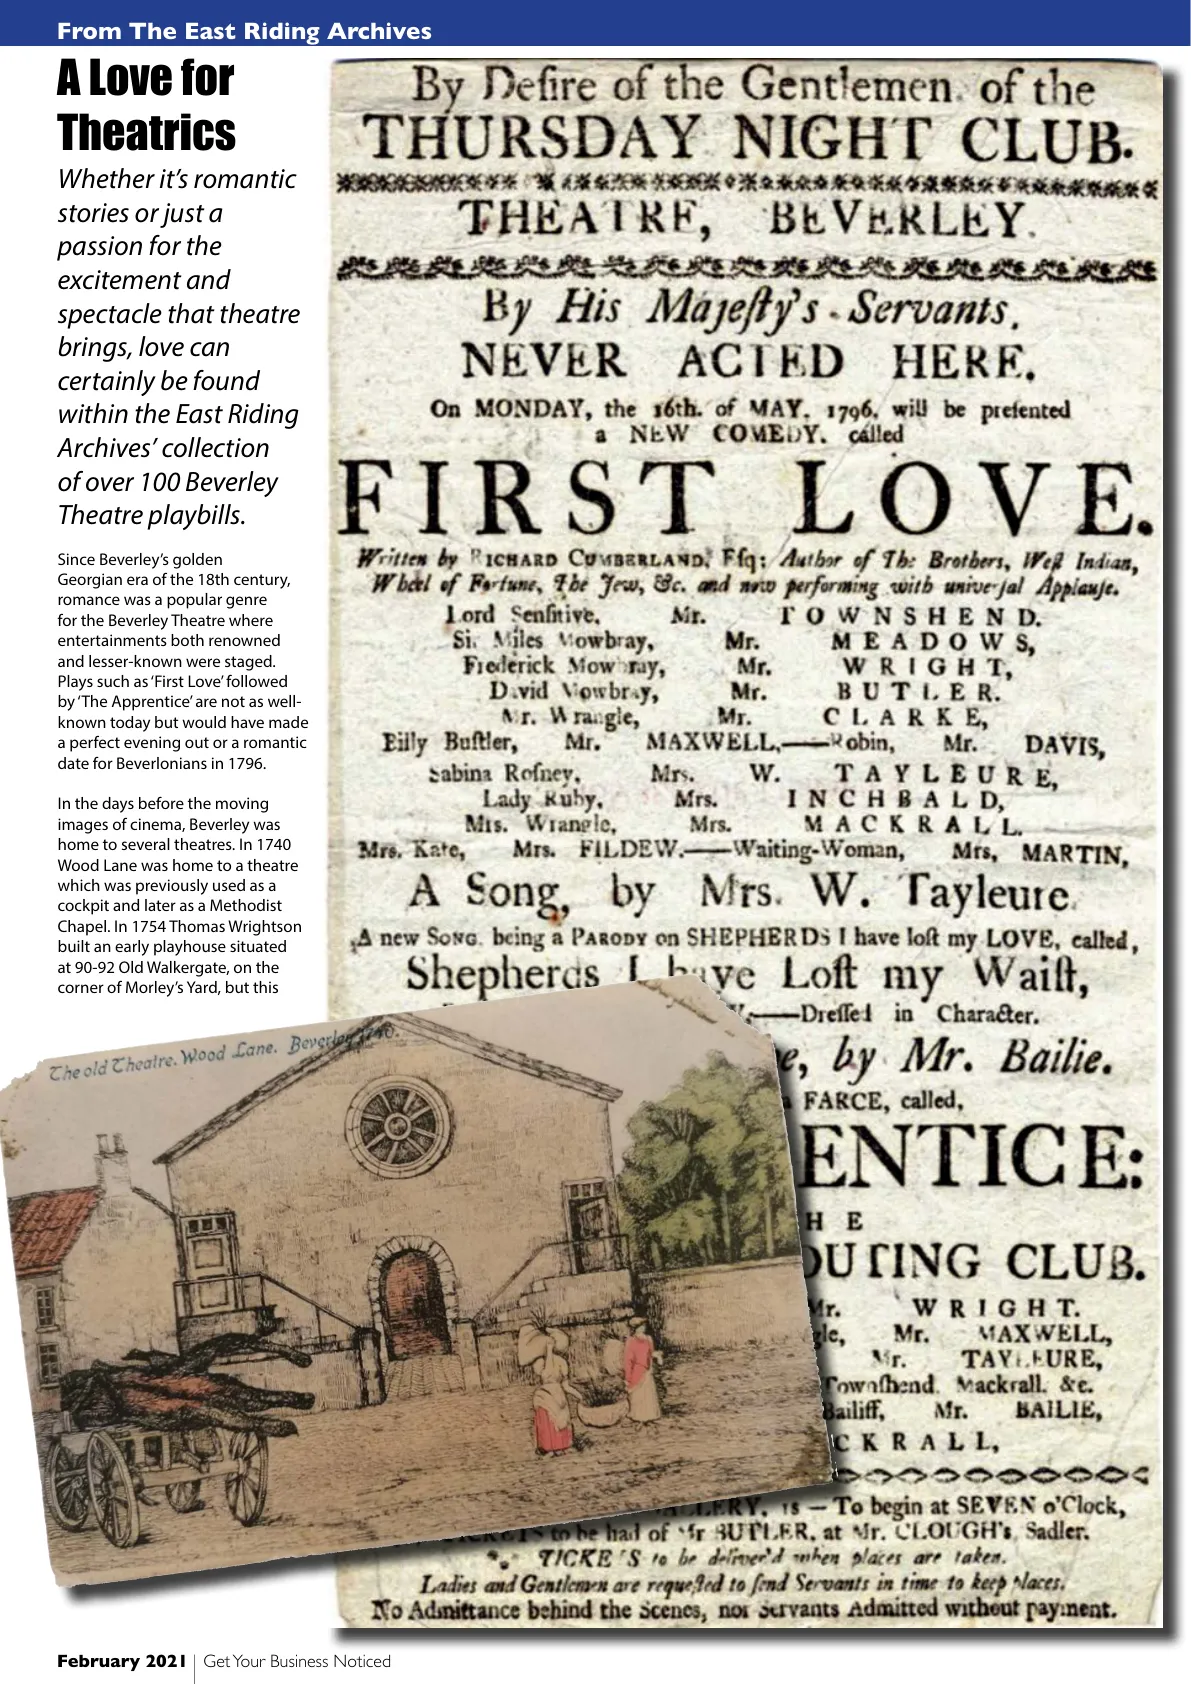 From The East Riding Archives
A Love for
Theatrics
Whether it’s romantic
stories or just a
passion for the
excitement and
spectacle that theatre
brings, love can
certainly be found
within the East Riding
Archives’ collection
of over 100 Beverley
Theatre playbills.
Since Beverley’s golden
Georgian era of the 18th century,
romance was a popular genre
for the Beverley Theatre where
entertainments both renowned
and lesser-known were staged.
Plays such as ‘First Love’ followed
by ‘The Apprentice’ are not as well-
known today but would have made
a perfect evening out or a romantic
date for Beverlonians in 1796.
In the days before the moving
images of cinema, Beverley was
home to several theatres. In 1740
Wood Lane was home to a theatre
which was previously used as a
cockpit and later as a Methodist
Chapel. In 1754 Thomas Wrightson
built an early playhouse situated
at 90-92 Old Walkergate, on the
corner of Morley’s Yard, but this
By Deſire of the Gentlemen of the
THURSDAY NIGHT CLUB.
THEATRE, BEVERLEY.
By His Majeſty's Servants.
NEVER ACTED HERE.
On MONDAY, the 16th. of MAY, 1796, will be preſented
a NEW COMEDY, called
FIRST LOVE.
Written by RICHARD CUMBERLAND, Eſq; Author of The Brothers, Weſt Indian,
Wheel of Fortune, The Jew, &c. and now performing with univerſal Applauſe.
Lord Senſitive, Mr. TOWNSHEND.
Sir Miles Mowbray, Mr. MEADOWS,
Frederick Mowbray, Mr. WRIGHT,
David Mowbray, Mr. BUTLER.
Mr. Wrangle, Mr. CLARKE,
Billy Buſtler, Mr. MAXWELL,—Robin, Mr. DAVIS,
Sabina Roſney, Mrs. W. TAYLEURE,
Lady Ruby, Mrs. INCHBALD,
Mrs. Wrangle, Mrs. MACKRALL.
Mrs. Kate, Mrs. FILDEW.—Waiting-Woman, Mrs, MARTIN,
A Song, by Mrs. W. Tayleure.
A new SONG. being a PARODY on SHEPHERDS I have loſt my LOVE, called,
Shepherds I have Loſt my Waiſt,
—Dreſſed in Character.
e, by Mr. Bailie.
a FARCE, called,
ENTICE:
HE
OUTING CLUB.
Mr. WRIGHT.
gle, Mr. MAXWELL,
Mr. TAYLEURE,
Townſhend, Mackrall, &c.
Bailiff, Mr. BAILIE,
CKRALL,
ALLERY, 1s — To begin at SEVEN o'Clock,
TICKETS to be had of Mr BUTLER, at Mr. CLOUGH's, Sadler.
*.* TICKETS to be deliver'd when places are taken.
Ladies and Gentlemen are requeſted to ſend Servants in time to keep places.
No Admittance behind the Scenes, nor Servants Admitted without payment.
The old Theatre. Wood Lane. Beverley 1740.
February 2021 | Get Your Business Noticed